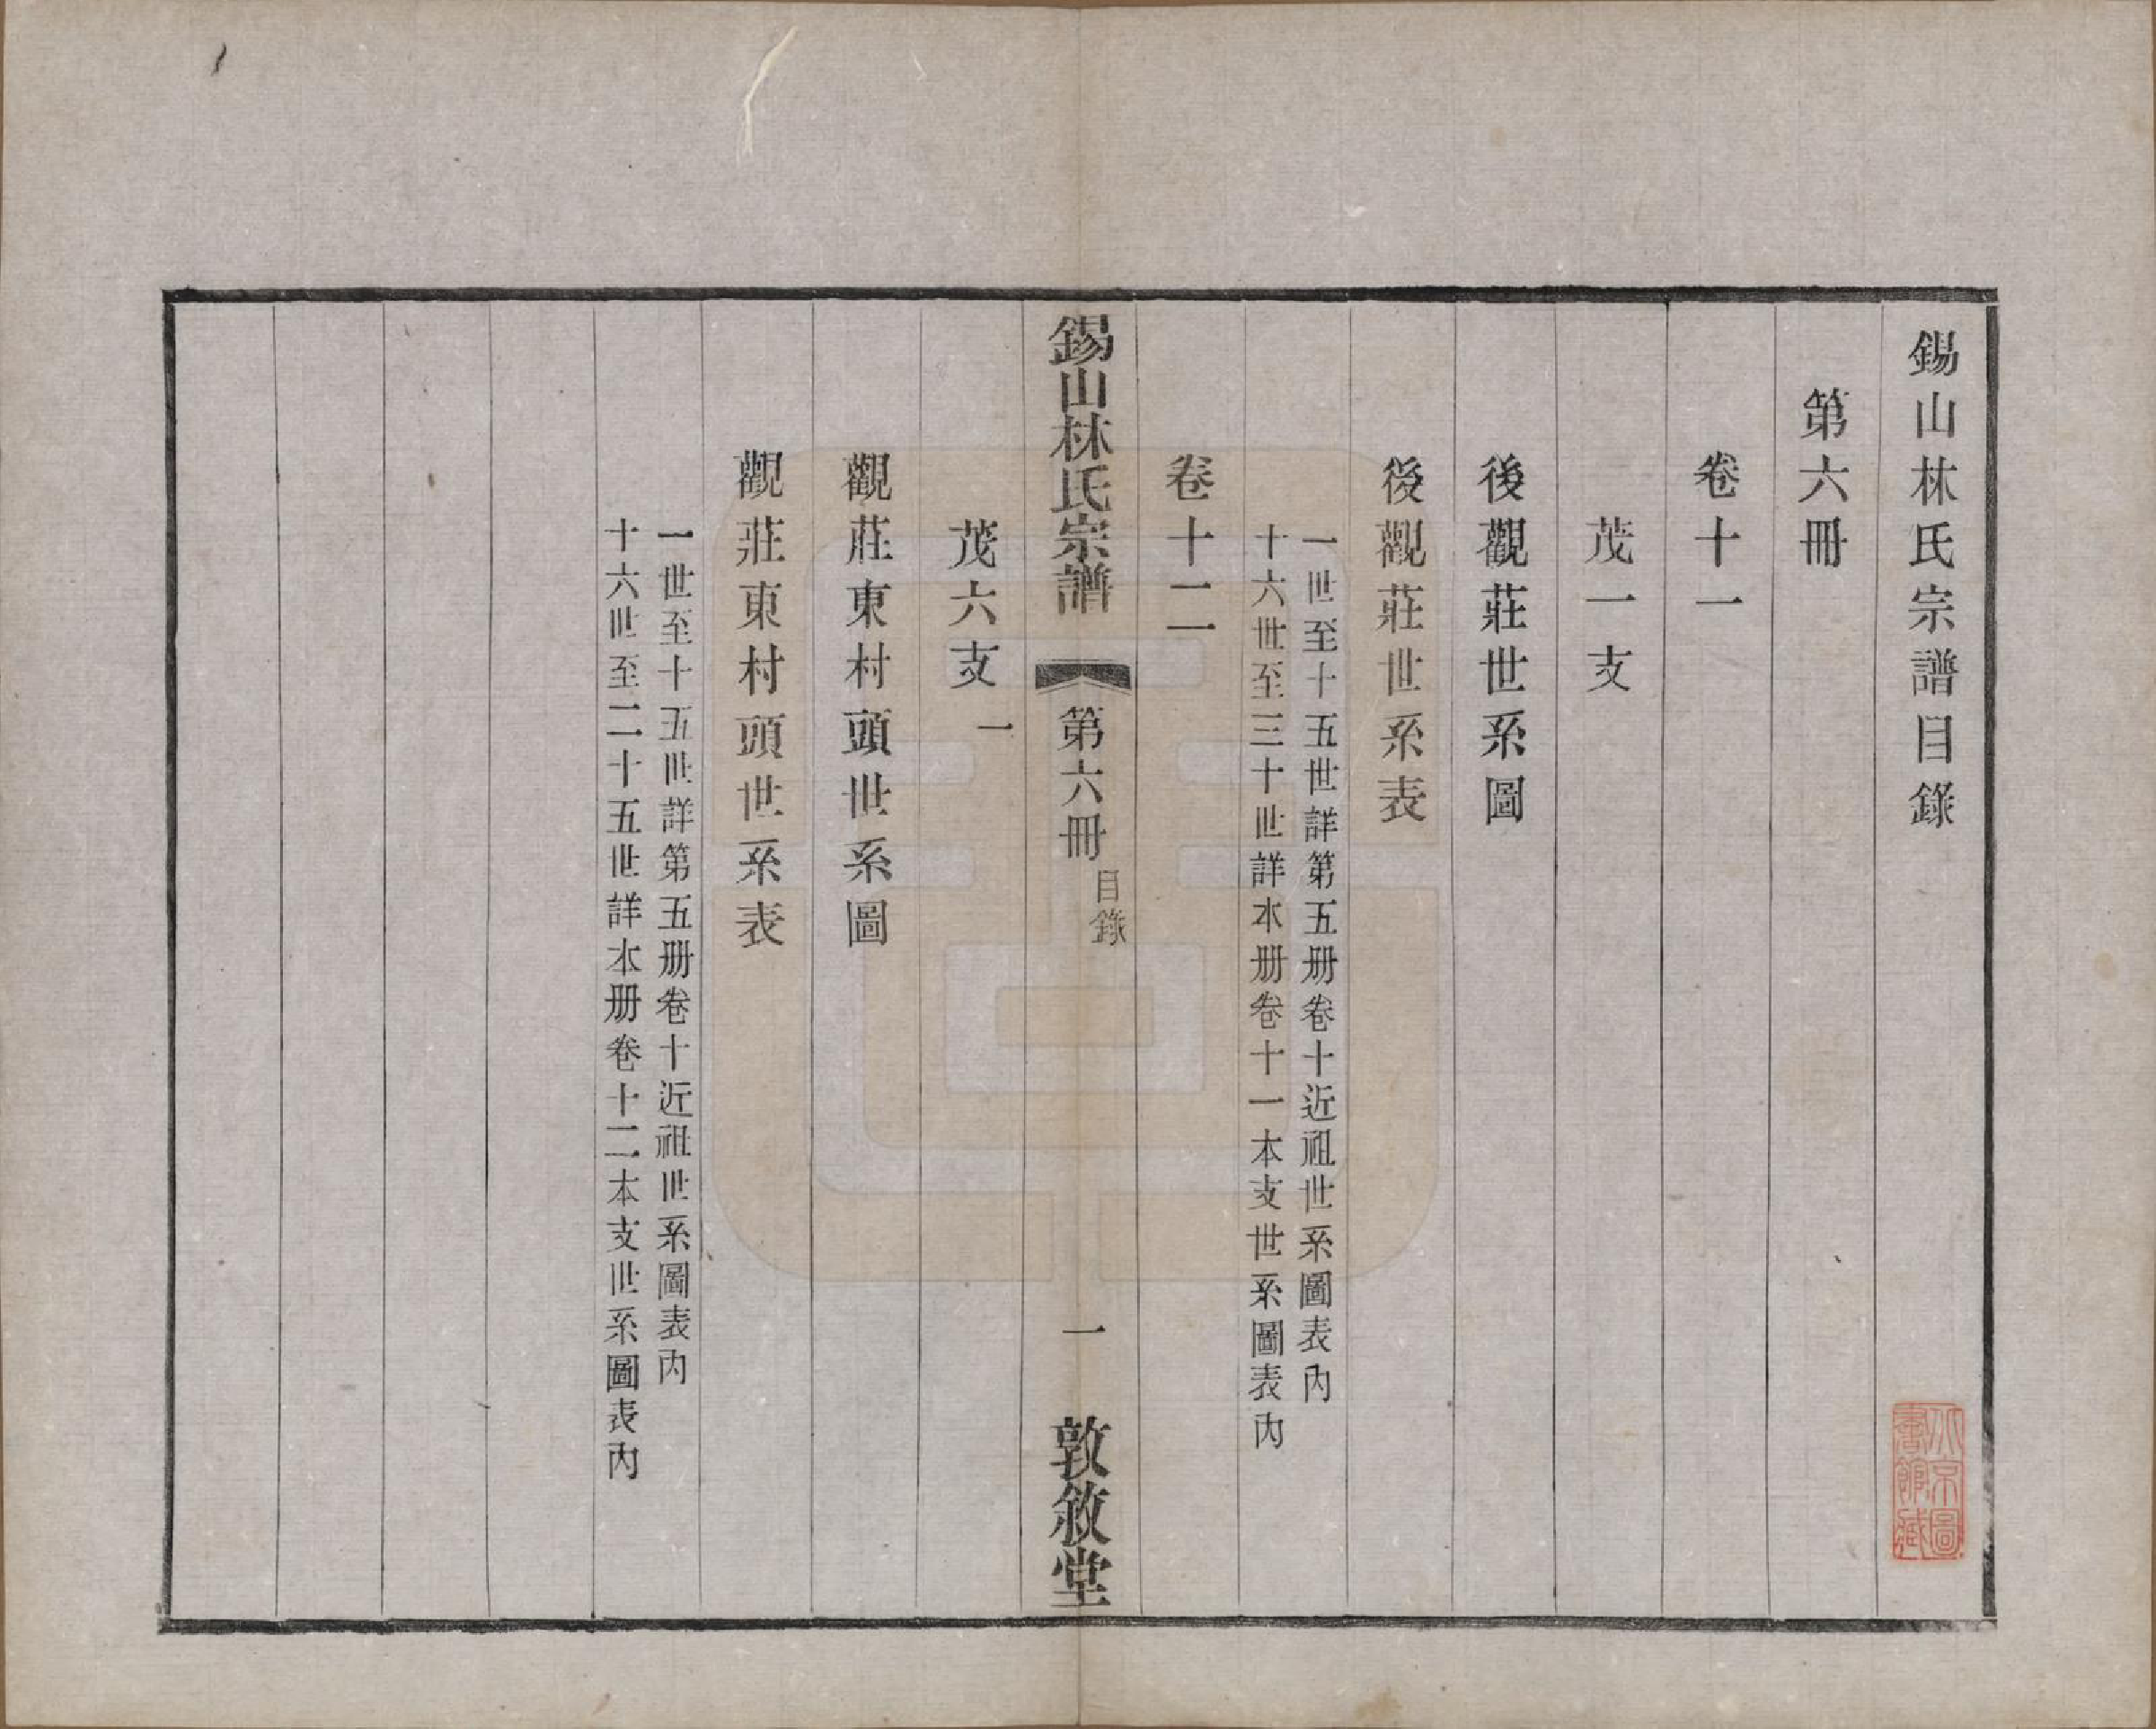 錫山林氏宗譜目錄
第六冊
卷十一
茂一支
後觀莊世系圖
後觀莊世系表
一世至十五世詳第五册卷十近祖世系圖表內
十六世至三十世詳本册卷十一本支世系圖表內
卷十二
錫山林氏宗譜
第六冊
目錄
一
敦敘堂
茂六支一
觀莊東村頭世系圖
觀莊東村頭世系表
一世至十五世詳第五册卷十近祖世系圖表內
十六世至二十五世詳本册卷十二本支世系圖表內
北京圖書館藏